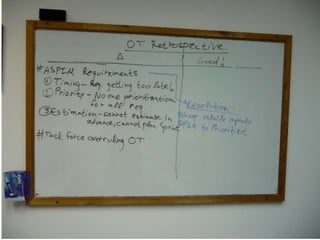 OT Retrospective
Δ
Good!
#ASPIM Requirements
① Timing - Req. getting too late!
② Priority - No one prioritization
for all req.
③ Estimation - cannot estimate in
advance, cannot plan Sprint
#Task force overruling OT
Resolution:
Keep capacity
to Prioritize